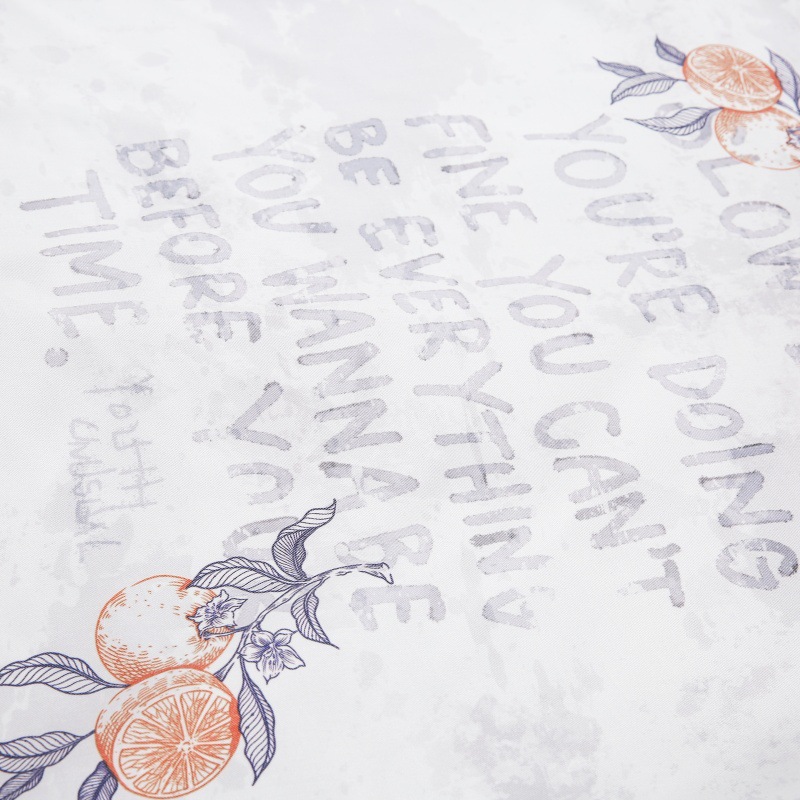 SLOW
YOU'RE DOING
FINE YOU CAN'T
BE EVERYTHING
YOU WANNA BE
BEFORE YOU
TIME.